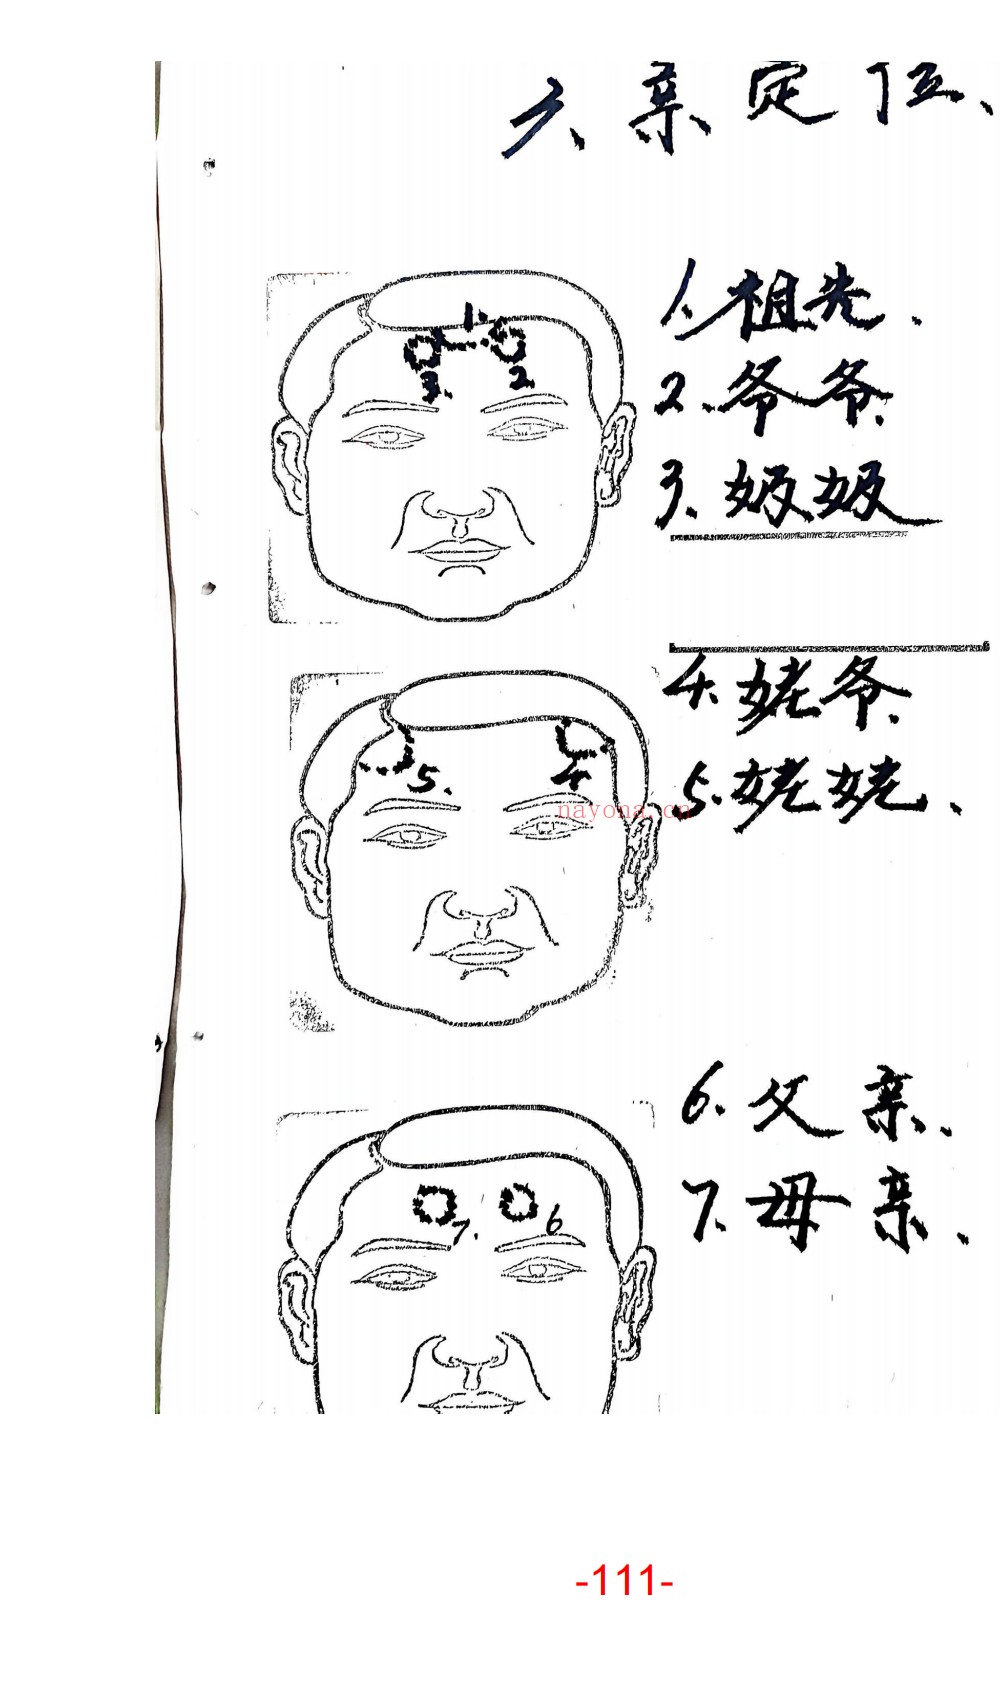 六亲定位、
1.
3. 2.
1.祖先.
2.爷爷.
3.奶奶
5. 4
4.姥爷.
5.姥姥、
nayona.cn
7. 6
6.父亲、
7.母亲、
-111-